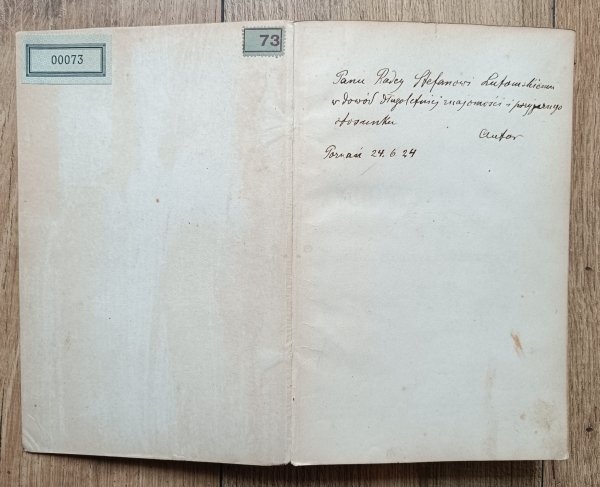 00073
73
Panu Radcy Stefanowi Lutomskiemu
w dowód długoletniej znajomości i przyjaznego
stosunku
Autor
Poznań 24. 6. 24